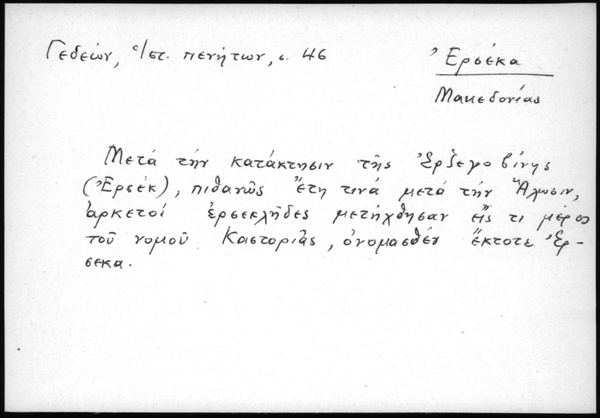 Γεδεών, Ἱστ. πενήτων, σ. 46
Ἐρσέκα
Μακεδονίας
Μετά τήν κατάκτησιν τῆς Ἐρζεγοβίνης
(Ἐρσέκ), πιθανῶς ἔτη τινά μετά τήν Ἅλωσιν,
ἀρκετοί ἐρσεκλῆδες μετήχθησαν εἴς τι μέρος
τοῦ νομοῦ Καστοριᾶς, ὀνομασθέν ἔκτοτε Ἐρ-
σεκα.